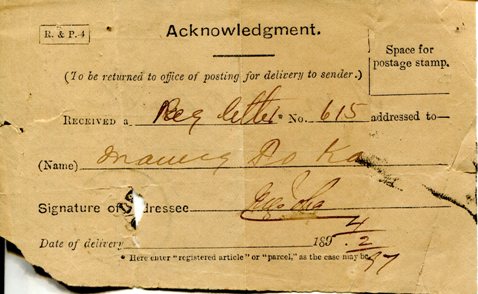 R. & P. 4
Acknowledgment.
Space for
postage stamp.
(To be returned to office of posting for delivery to sender.)
RECEIVED a Reg letter * No. 615 addressed to—
(Name) Maung Po Ka
Signature of ddressee
Date of delivery 189 4/2/97
* Here enter "registered article" or "parcel," as the case may be.